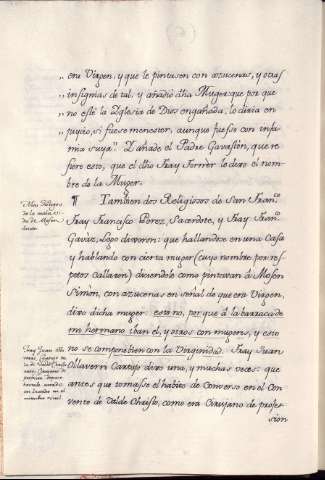 era Virgen, y que le pintasen con azucenas, y otras
insignias de tal. y añadió dha Muger: que por que
no esté la Yglesia de Dios engañada, lo diria en
juycio, si fuese menester, aunque fuese con infa-
mia suya. Y añade el Padre Gavastón, que re-
fiere esto, que el dho Fray Ferrèr le dixo el nom-
bre de la Muger.
¶ Tambien dos Religiosos de San Franco
Fray Francisco Perez, Sacerdote, y Fray
Lego dixeron: que hallandose en una Casa
y hablando con cierta muger (cuyo nombre por res-
petos callaren) diciendole como pintavan à Mosen
Simòn, con azucenas en señal de que era Virgen,
dixo dicha muger: esto no, por que à la barraca de
mi hermano iban el, y otros con mugeres, y esto
no se compone bien con la Virginidad. Fray Juan
Ollavern Cartujo dixo una, y muchas veces: que
antes que tomasse el habito de Converso en el Con-
vento de Vàl de Christo, como era Cirujano de profes-
sion
de la mala vi-
da de Mosen
Fray Juan